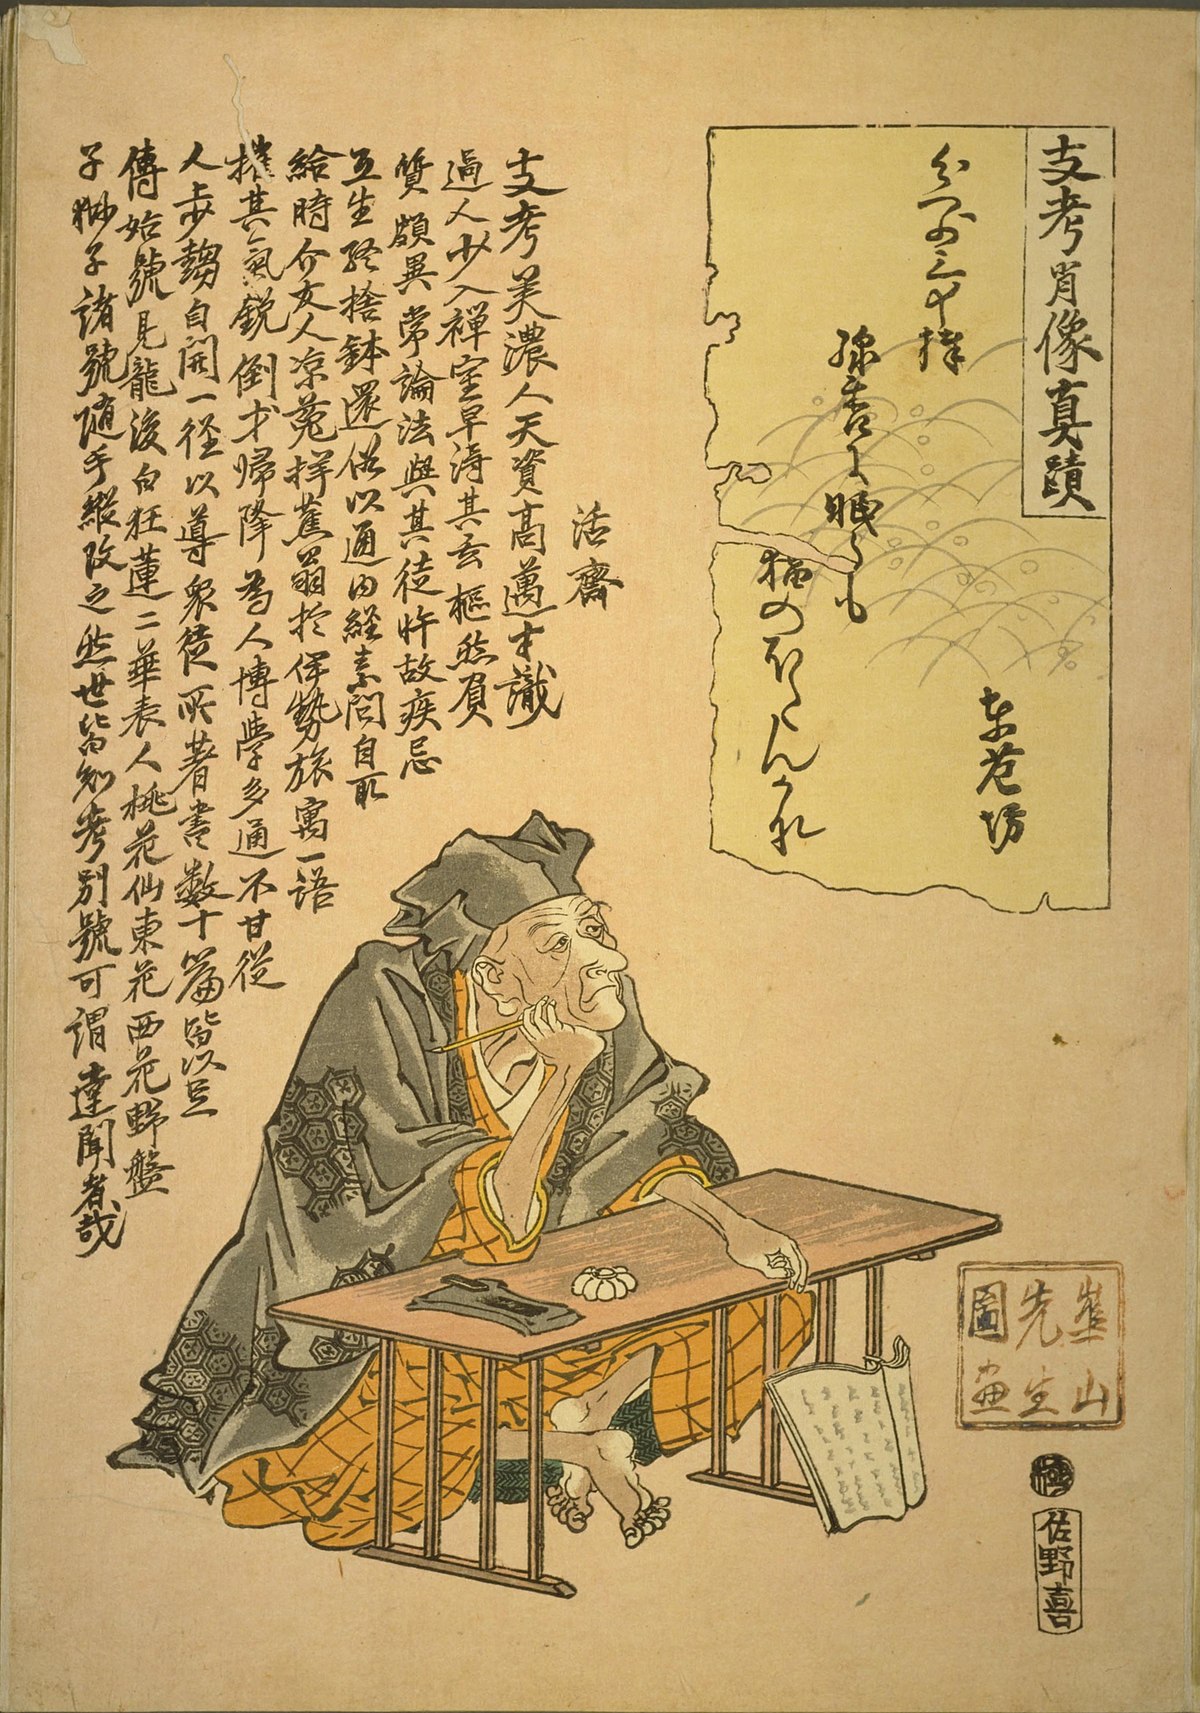 支考肖像真蹟
東花坊
活齋
支考美濃人天資高邁才識
過人少入禅室早得其玄樞然負
質頗異常論法與其徒忤故疾忌
互生終捨鉢還俗以通内経素問自取
給時介女人凉菟拝蕉翁於伊勢旅寓一語
摧其氣鋭倒才帰降為人博學多通不甘從
人歩趨自開一径以導衆徒所著書数十篇皆以
傳始號見龍後白狂蓮二華表人桃花仙東花西花野盤
子獅子諸號随手縦改之然世皆知考別號可謂達聞者哉
崋山
先生
圖畫
極
佐野喜